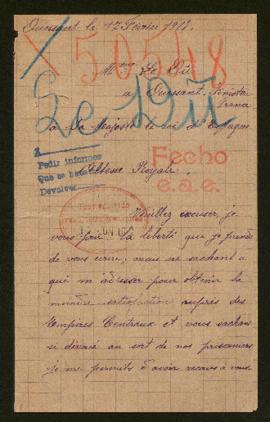 Ouessant le 12 Février 1917.
50548
Mme Le Dû
à Ouessant, Finistère
France
Le Dû
à Sa Majesté le roi d'Espagne
Pedir informes
Que se
Devolver
Fecho
e.a.e.
Altesse Royale,
Veuillez excuser, je
vous prie la liberté que je prends
de vous écrire, mais ne sachant à
qui m'adresser pour obtenir la
moindre satisfaction auprès des
Empires Centraux et vous sachant
si dévoué au sort de nos prisonniers
je me permets d'avoir recours à vous